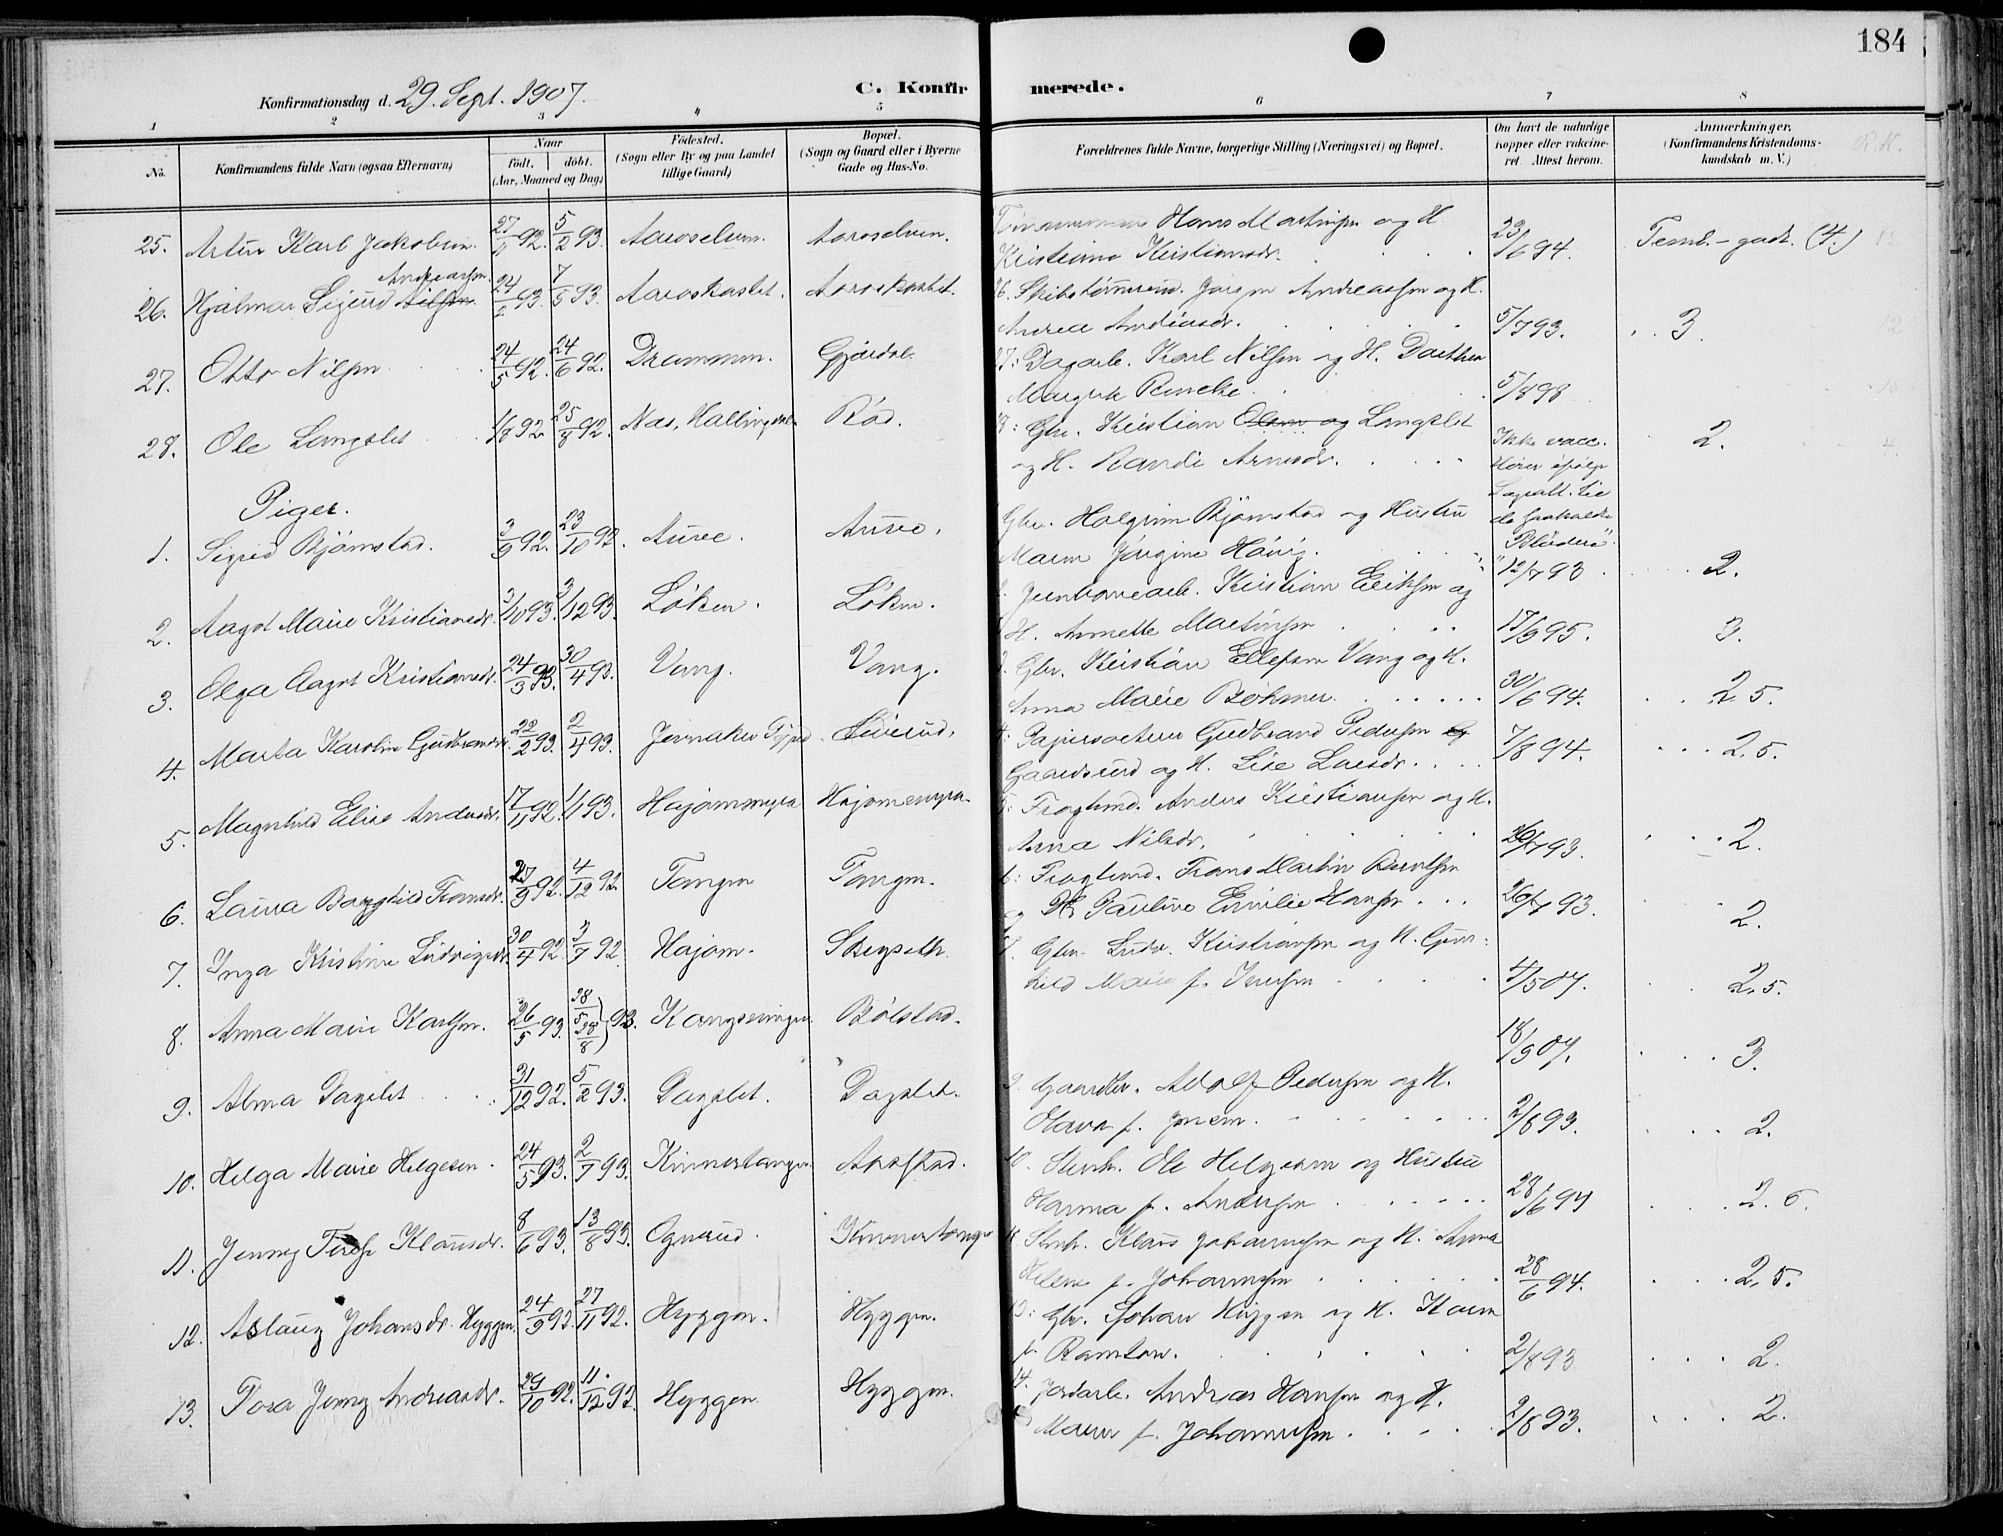 184
Konfirmationsdag d. 29. Sept. 1907.
C. Konfirmerede.
1 2 3 4 5 6 7 8
No.
Konfirmandens fulde Navn (ogsaa Efternavn)
Naar
født. døbt.
(Aar, Maaned og Dag)
Fødested.
(Sogn eller By og paa Landet
tillige Gaard)
Bopæl.
(Sogn og Gaard eller i Byerne
Gade og Hus-No.
Forældrenes fulde Navne, borgerlige Stilling (Næringsvei) og Bopæl.
Om havt de naturlige
Kopper eller vakcine-
ret. Attest herom.
Anmærkninger,
(Konfirmandens Kristendoms-
kundskab m. V.)
25. Artur Karl Jakobsen. 5/2 93. Aaroselven. Aaroselven. Hans Martinsen og H.
Kristiane Kristiansdr. 23/6 94. Teml.-godt. (4.)
Andreassen
26. Hjalmar Sigurd 7/5 93. Aaroskastet. Aaroskastet. Jørgen Andreassen og H.
Andrea Andreasdr. 5/7 93. 3.
27. Otto Nilsen 24/5 92. 24/6 92. Drammen. Gjerdal. Dagarb. Karl Nilsen og H. Dorthea
Margrete 5/8 98
28. Ole Langslet 1/8 92 25/8 92. Næs, Hallingdal. Rød. Gbr. Kristian Olsen og Langslet
og H. Randi Arnesdr. Ikke vacc. 2.
Piger.
1. Sigrid Bjørnstad. 3/9 92. 23/10 92. Auve. Auve. Gbr. Halgrim Bjørnstad og Hustru
Maren Jørgine 12/7 93 2.
2. Aagot Marie Kristiansdr. 3/10 93. 3/12 93. Løken. Løken. Jernbanearb. Kristian Eriksen og
H. Annette Martinsen 17/9 95. 3.
3. Olga Aagot Kristiansdr. 24/3 93. 30/4 93. Vang. Vang. Gbr. Kristian Ellefsen Vang og H.
Anna Marie Bøhmer. 30/6 94. 2.5.
4. Marta Karoline Gudbrandsdr. 22/2 93. 2/4 93. Jevnaker Gudbrand Pedersen
Gaardsrud og H. Lise Larsdr. 7/8 94. 2.5.
5. Magnhild Elise Andersdr. 17/11 92. 1/1 93. Højommyra Højommyra. Fragtmd. Anders Kristiansen og H.
Anna Nilsdr. 26/7 93. 2.
6. Laura Borghild Fransdr. 27/9 92. 4/12 92. Tangen Tangen. Fragtmd. Frans Martin Berntsen
og H. Pauline Emilie Hansen 26/7 93. 2.
7. Inga Kristine Ludvigsdr. 30/4 92. 3/7 92. Højom. Skegseth. Gbr. Ludv. Kristiansen og H. Gun-
hild Marie f. Iversen 4/5 07. 2.5.
8. Anna Marie Karlsen. 26/5 93. 28/5 28/8 93. Kongsvinger. Bølstad. 18/9 07. 3.
9. Alma Dagslet 31/12 92. 5/2 93. Dagslet. Dagslet. Gaardbr. Adolf Pedersen og H.
Olava f. Jensen. 2/8 93. 2.
10. Helga Marie Helgesen. 24/5 93. 2/7 93. Kinnertangen. Aasstad. Stenh. Ole Helgesen og Hustru
Hanna f. Andersen 28/6 94 2.5.
11. Jenny Terese Klausdr. 8/6 93. 13/8 93. Ognerud. Kinnertangen Stenh. Klaus Johannesen og H. Anna
Helene f. Johannesen 28/6 94. 2.5.
12. Aslaug Johansdr. Hyggen. 24/9 92. 27/11 92. Hyggen. Hyggen. Gbr. Johan Hyggen og H. Karen
f. Ramton. 2/8 93 2.
13. Tora Jenny Andreasdr. 29/10 92. 11/12 92. Hyggen. Hyggen. Jordarb. Andreas Hansen og H.
Maren f. Johannesen. 2/8 93. 2.